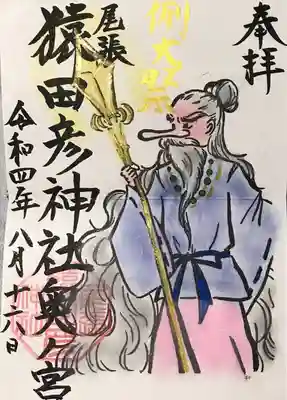 奉拝
例大祭
尾張
猿田彦神社奥ノ宮
令和四年八月十六日